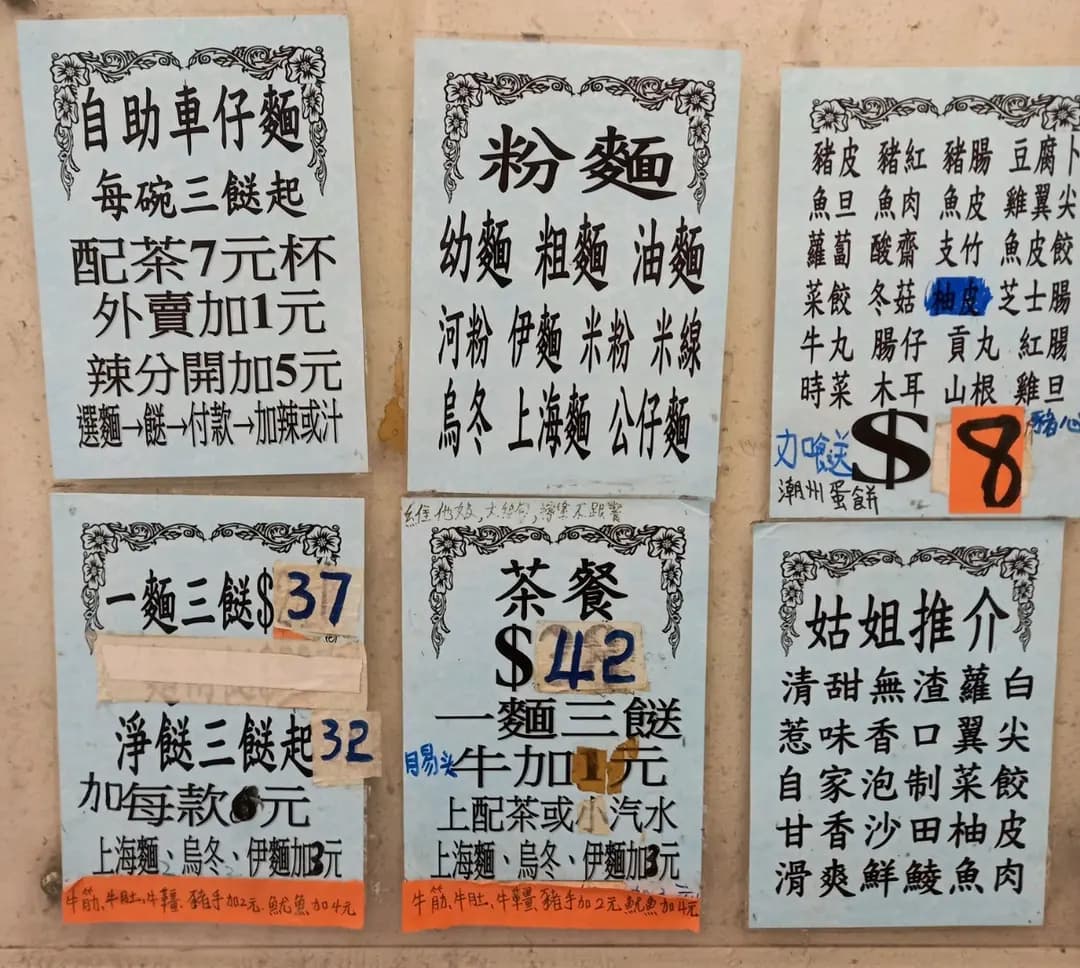 自助車仔麵
每碗三餸起
配茶7元杯
外賣加1元
辣分開加5元
選麵→餸→付款→加辣或汁
粉麵
幼麵 粗麵 油麵
河粉 伊麵 米粉 米線
烏冬 上海麵 公仔麵
豬皮 豬紅 豬腸 豆腐卜
魚旦 魚肉 魚皮 雞翼尖
蘿蔔 酸齋 支竹 魚皮餃
菜餃 冬菇 柚皮 芝士腸
牛丸 腸仔 貢丸 紅腸
時菜 木耳 山根 雞旦
$8
豬心
潮州蛋餅
一麵三餸$37
淨餸三餸起32
加每款元
上海麵、烏冬、伊麵加3元
牛筋、牛肚、牛轟、豬手加2元、魷魚加4元
茶餐
$42
一麵三餸
牛加1元
上配茶或小汽水
上海麵、烏冬、伊麵加3元
牛筋、牛肚、豬手加2元魷魚加4元
姑姐推介
清甜無渣蘿白
惹味香口翼尖
自家泡制菜餃
甘香沙田柚皮
滑爽鮮鯪魚肉